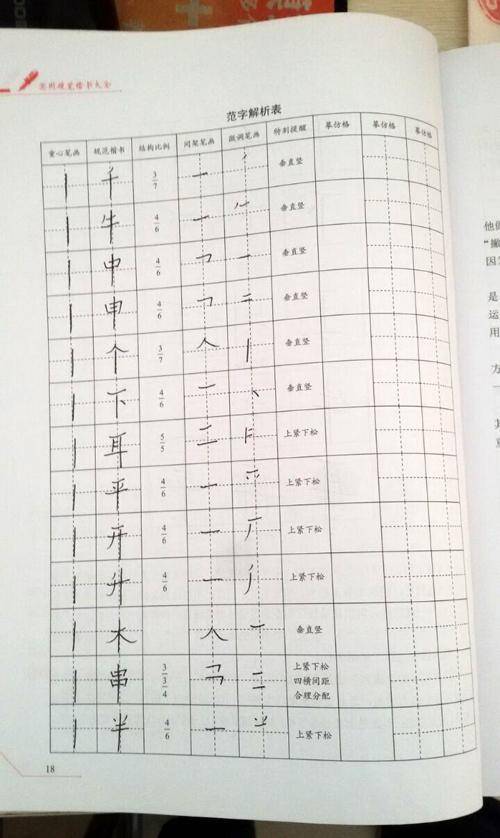 实用硬笔楷书大全
范字解析表
重心笔画 规范楷书 结构比例 间架笔画 微调笔画 特别提醒 摹仿格 摹仿格 摹仿格
丨 千 3/7 一 丿 垂直竖
丨 牛 4/6 一 𠂉 垂直竖
丨 中 4/6 ㇕ 一 垂直竖
丨 申 4/6 ㇕ 二 垂直竖
丨 个 3/7 人 丨 垂直竖
丨 下 4/6 一 丶 垂直竖
丨 耳 5/5 上紧下松
丨 平 4/6 一 上紧下松
丨 开 4/6 一 厂 上紧下松
丨 升 4/6 一 上紧下松
丨 木 人 一 垂直竖
丨 串 3/3/4 二 上紧下松
四横间距
合理分配
丨 半 4/6 一 上紧下松
18
他
"撇
因
是
运
用
方
其